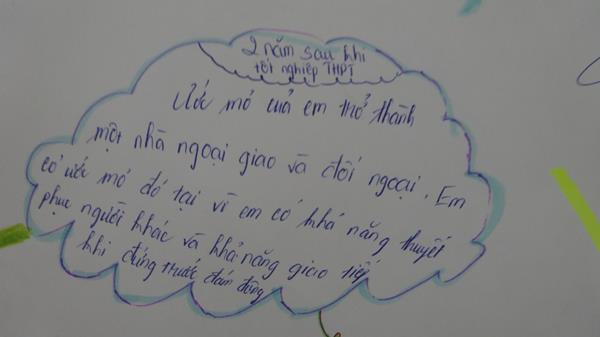 2 năm sau khi
tốt nghiệp THPT
Ước mơ của em trở thành
một nhà ngoại giao và đối ngoại. Em
có ước mơ đó tại vì em có khả năng thuyết
phục người khác và khả năng giao tiếp
khi đứng trước đám đông